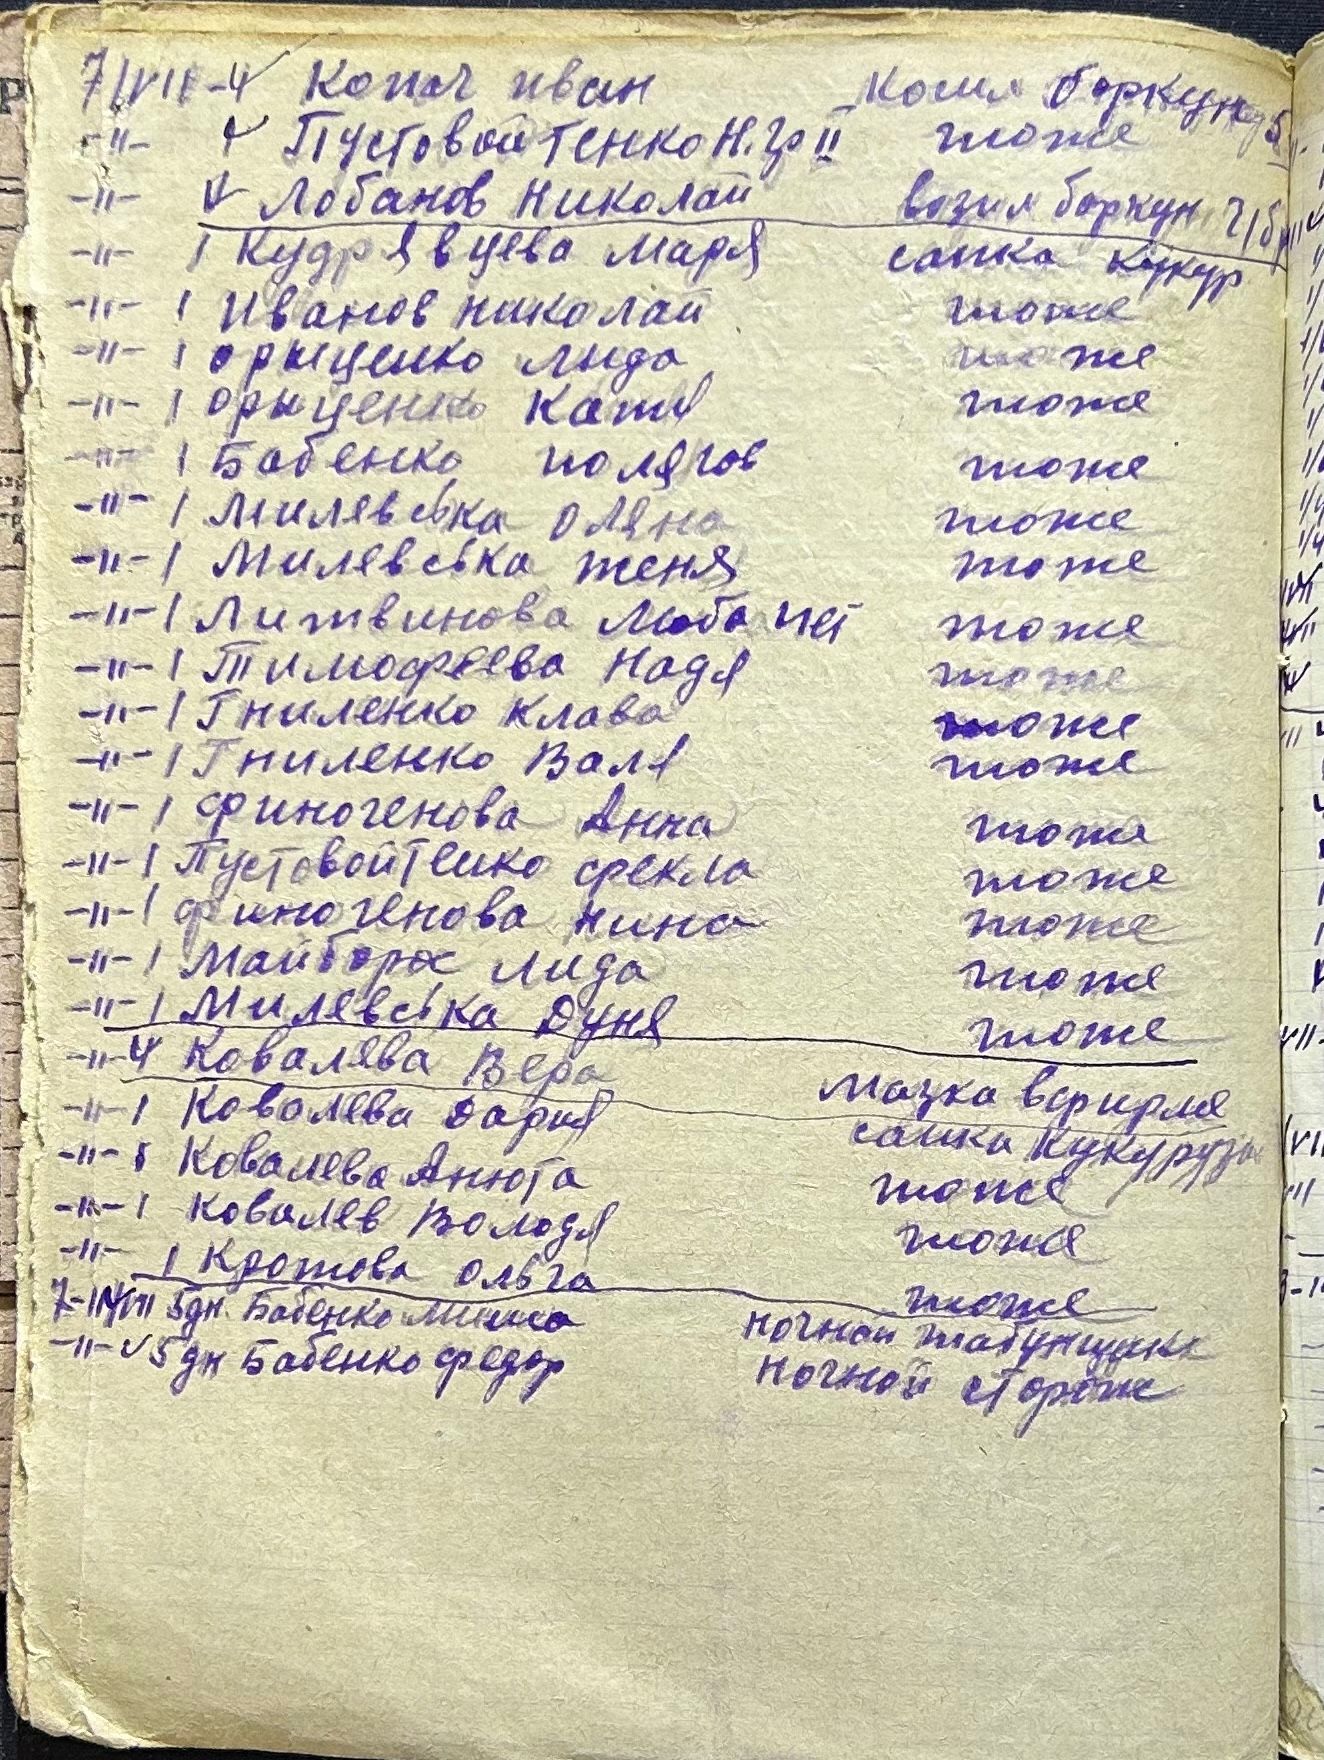 7/VII-4 Копач иван косил боркун
-"- Пустовойтенко Н. гр II тоже
-"- Лобанов николай возил боркун
-"- 1 Кудрявцева Маря сапка кукур
-"- 1 Иванов николай тоже
-"- 1 орищенко лида тоже
-"- 1 орищенко Катя тоже
-"- 1 Бабенко тоже
-"- 1 Милевська оляна тоже
-"- 1 Милевська женя тоже
-"- 1 Литвинова Люба тоже
-"- 1 Тимофеева Надя тоже
-"- 1 Гниленко Клава тоже
-"- 1 Гниленко Валя тоже
-"- 1 финогенова Анна тоже
-"- 1 Пустовойтенко фекла тоже
-"- 1 финогенова нина тоже
-"- 1 лида тоже
-"- 1 Милевська Дуня тоже
-"- Ковалева Вера Мазка
-"- 1 Ковалева Дария сапка Кукуруза
-"- Ковалева Анюта тоже
-"- 1 Ковалев Володя тоже
-"- 1 Кротова Ольга тоже
5 дн. Бабенко Миша ночной табунщик
-"- 5 дн Бабенко федор ночной сторож